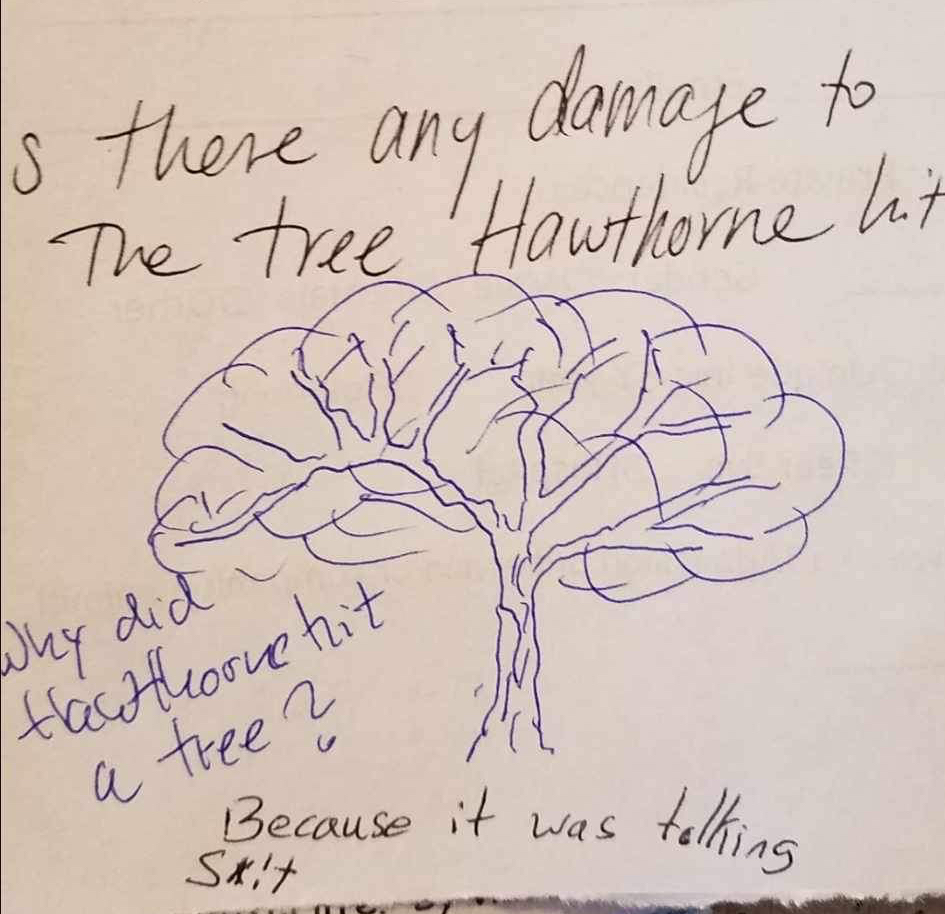 s there any damage to
The tree Hawthorne hit
Why did
Hawthorne hit
a tree?
Because it was talking
S*!t